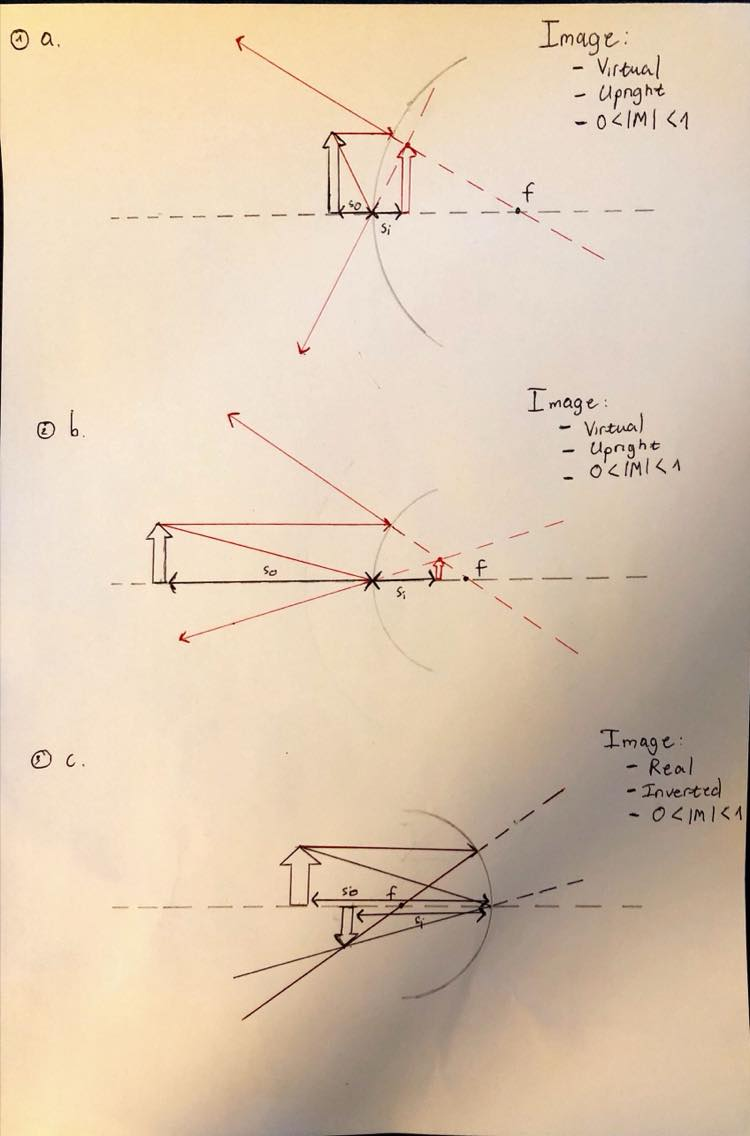 ① a.
Image:
- Virtual
- Upright
- 0<|M|<1
f
so
si
② b.
Image:
- Virtual
- Upright
- 0<|M|<1
f
so
si
③ c.
Image:
- Real
- Inverted
- 0<|M|<1
so
f
si